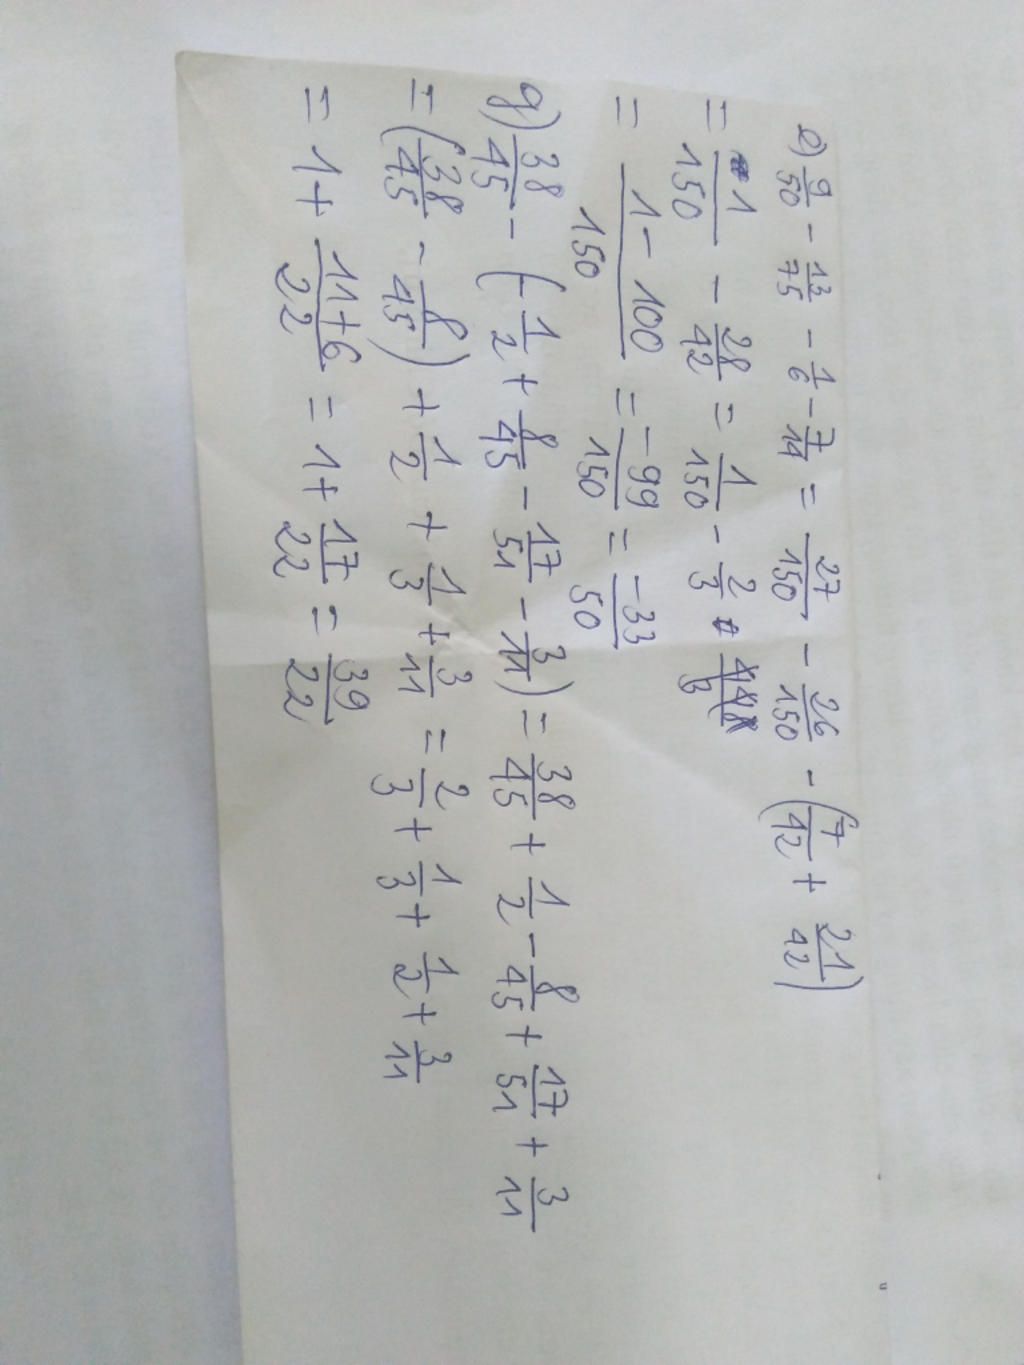 e) 9/50 - 13/75 - 1/6 - 7/14 = 27/150 - 26/150 - (7/42 + 21/42)
= 1/150 - 28/42 = 1/150 - 2/3
= (1 - 100)/150 = -99/150 = -33/50
g) 38/45 - (-1/2 + 8/45 - 17/51 - 3/11) = 38/45 + 1/2 - 8/45 + 17/51 + 3/11
= (38/45 - 8/45) + 1/2 + 1/3 + 3/11 = 2/3 + 1/3 + 1/2 + 3/11
= 1 + (11+6)/22 = 1 + 17/22 = 39/22